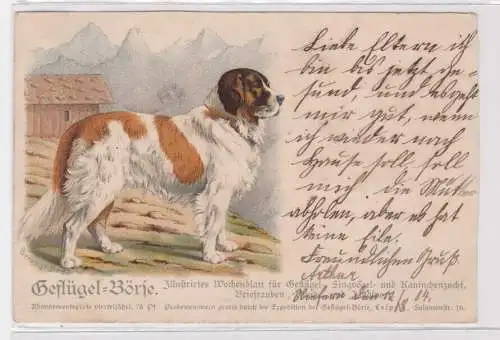 Liebe Eltern ich
bin bis jetzt ge-
sund, und es geht
mir gut, wenn
ich wieder nach
Hause soll, soll
mich die Mutter
abholen, aber es hat
keine Eile.
Freundlichen Gruß
Geflügel-Börse. Illustrirtes Wochenblatt für Geflügel-, Singvögel- und Kaninchenzucht,
Brieftauben
Abonnementspreis vierteljährl. 75 Pf. Probenummern gratis durch die Expedition der Geflügel-Börse, Leipzig, Salomonstr. 16.